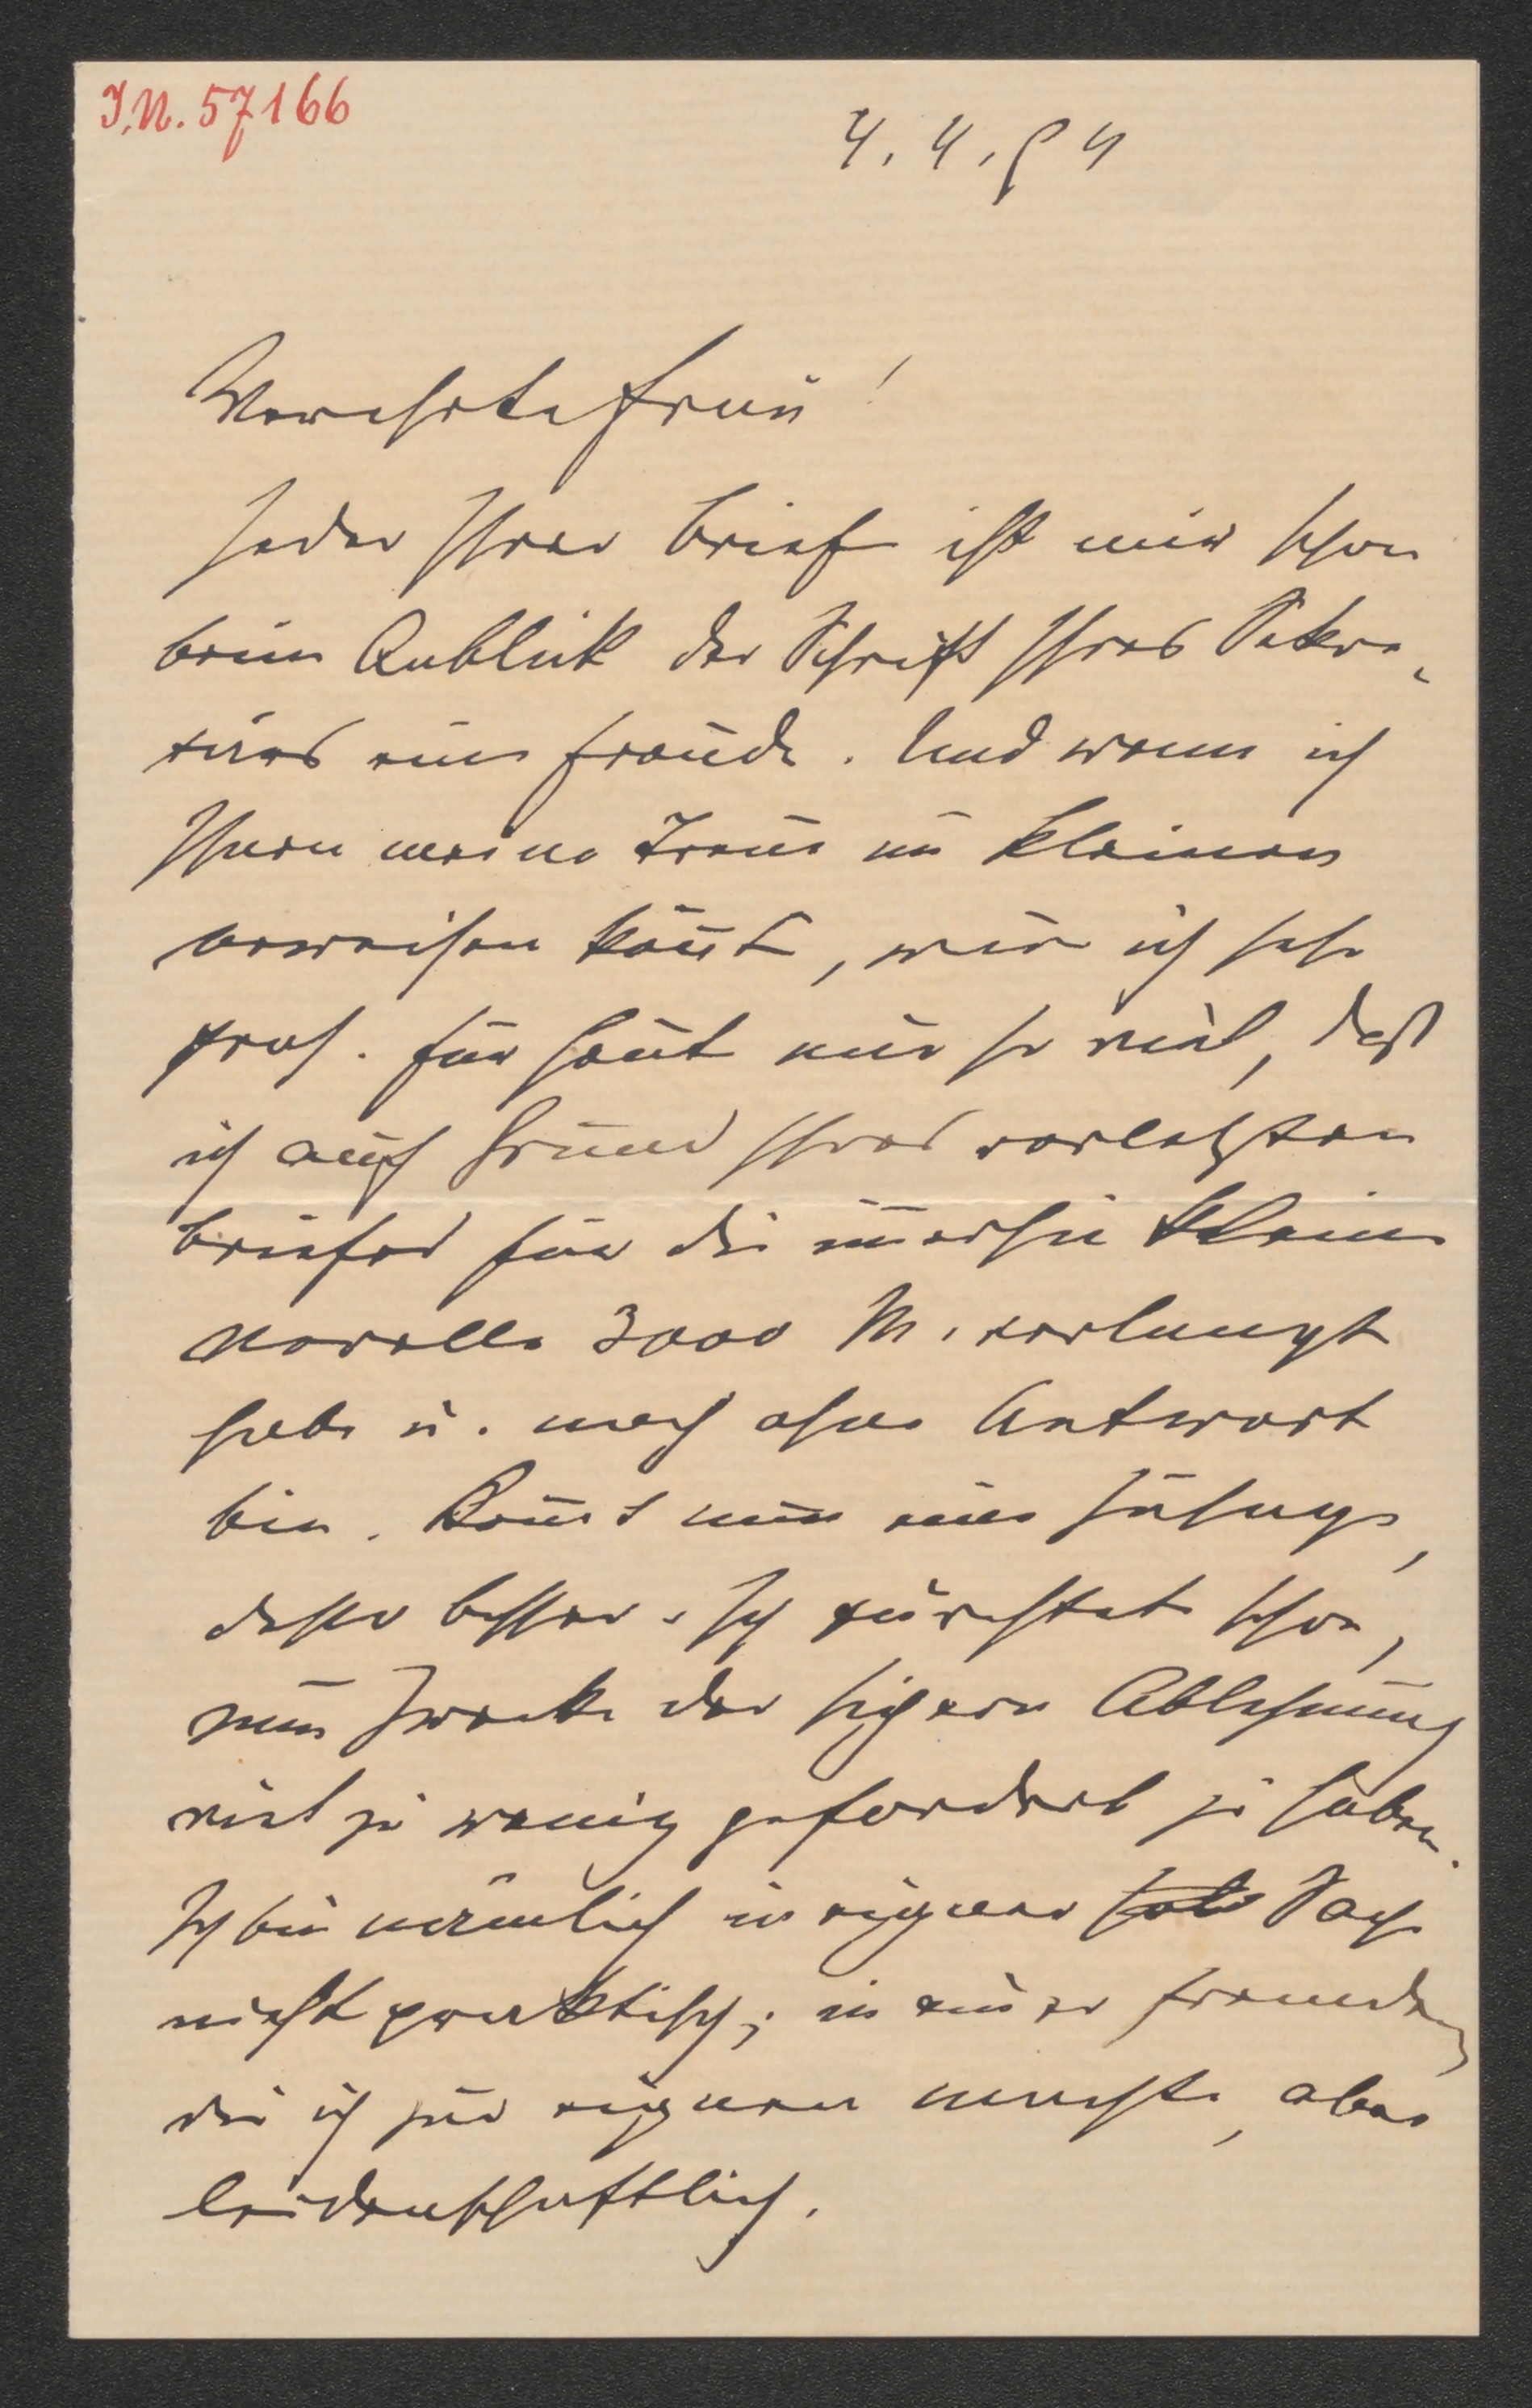 I.N. 57166
4. 4. 94
Verehrte Frau!
Jeder Ihrer Briefe ist mir schon
beim Anblick der Schrift Ihres Sekre-
tärs eine Freude. Und wenn ich
Ihnen meine Treue im Kleinen
erweisen kann, wär ich sehr
froh. Für heut nur so viel, daß
ich auf Grund Ihres vorletzten
Briefes für die immerhin kleine
Novelle 3000 M. verlangt
habe u. noch ohne Antwort
bin. Kommt nun eine Zusage,
desto besser. Ich fürchtete schon,
zum Zwecke der sichern Ablehnung
viel zu wenig gefordert zu haben.
Ich bin nämlich in eigener Sache
nicht praktisch; in einer fremden,
die ich zur eigenen machte, aber
leidenschaftlich.